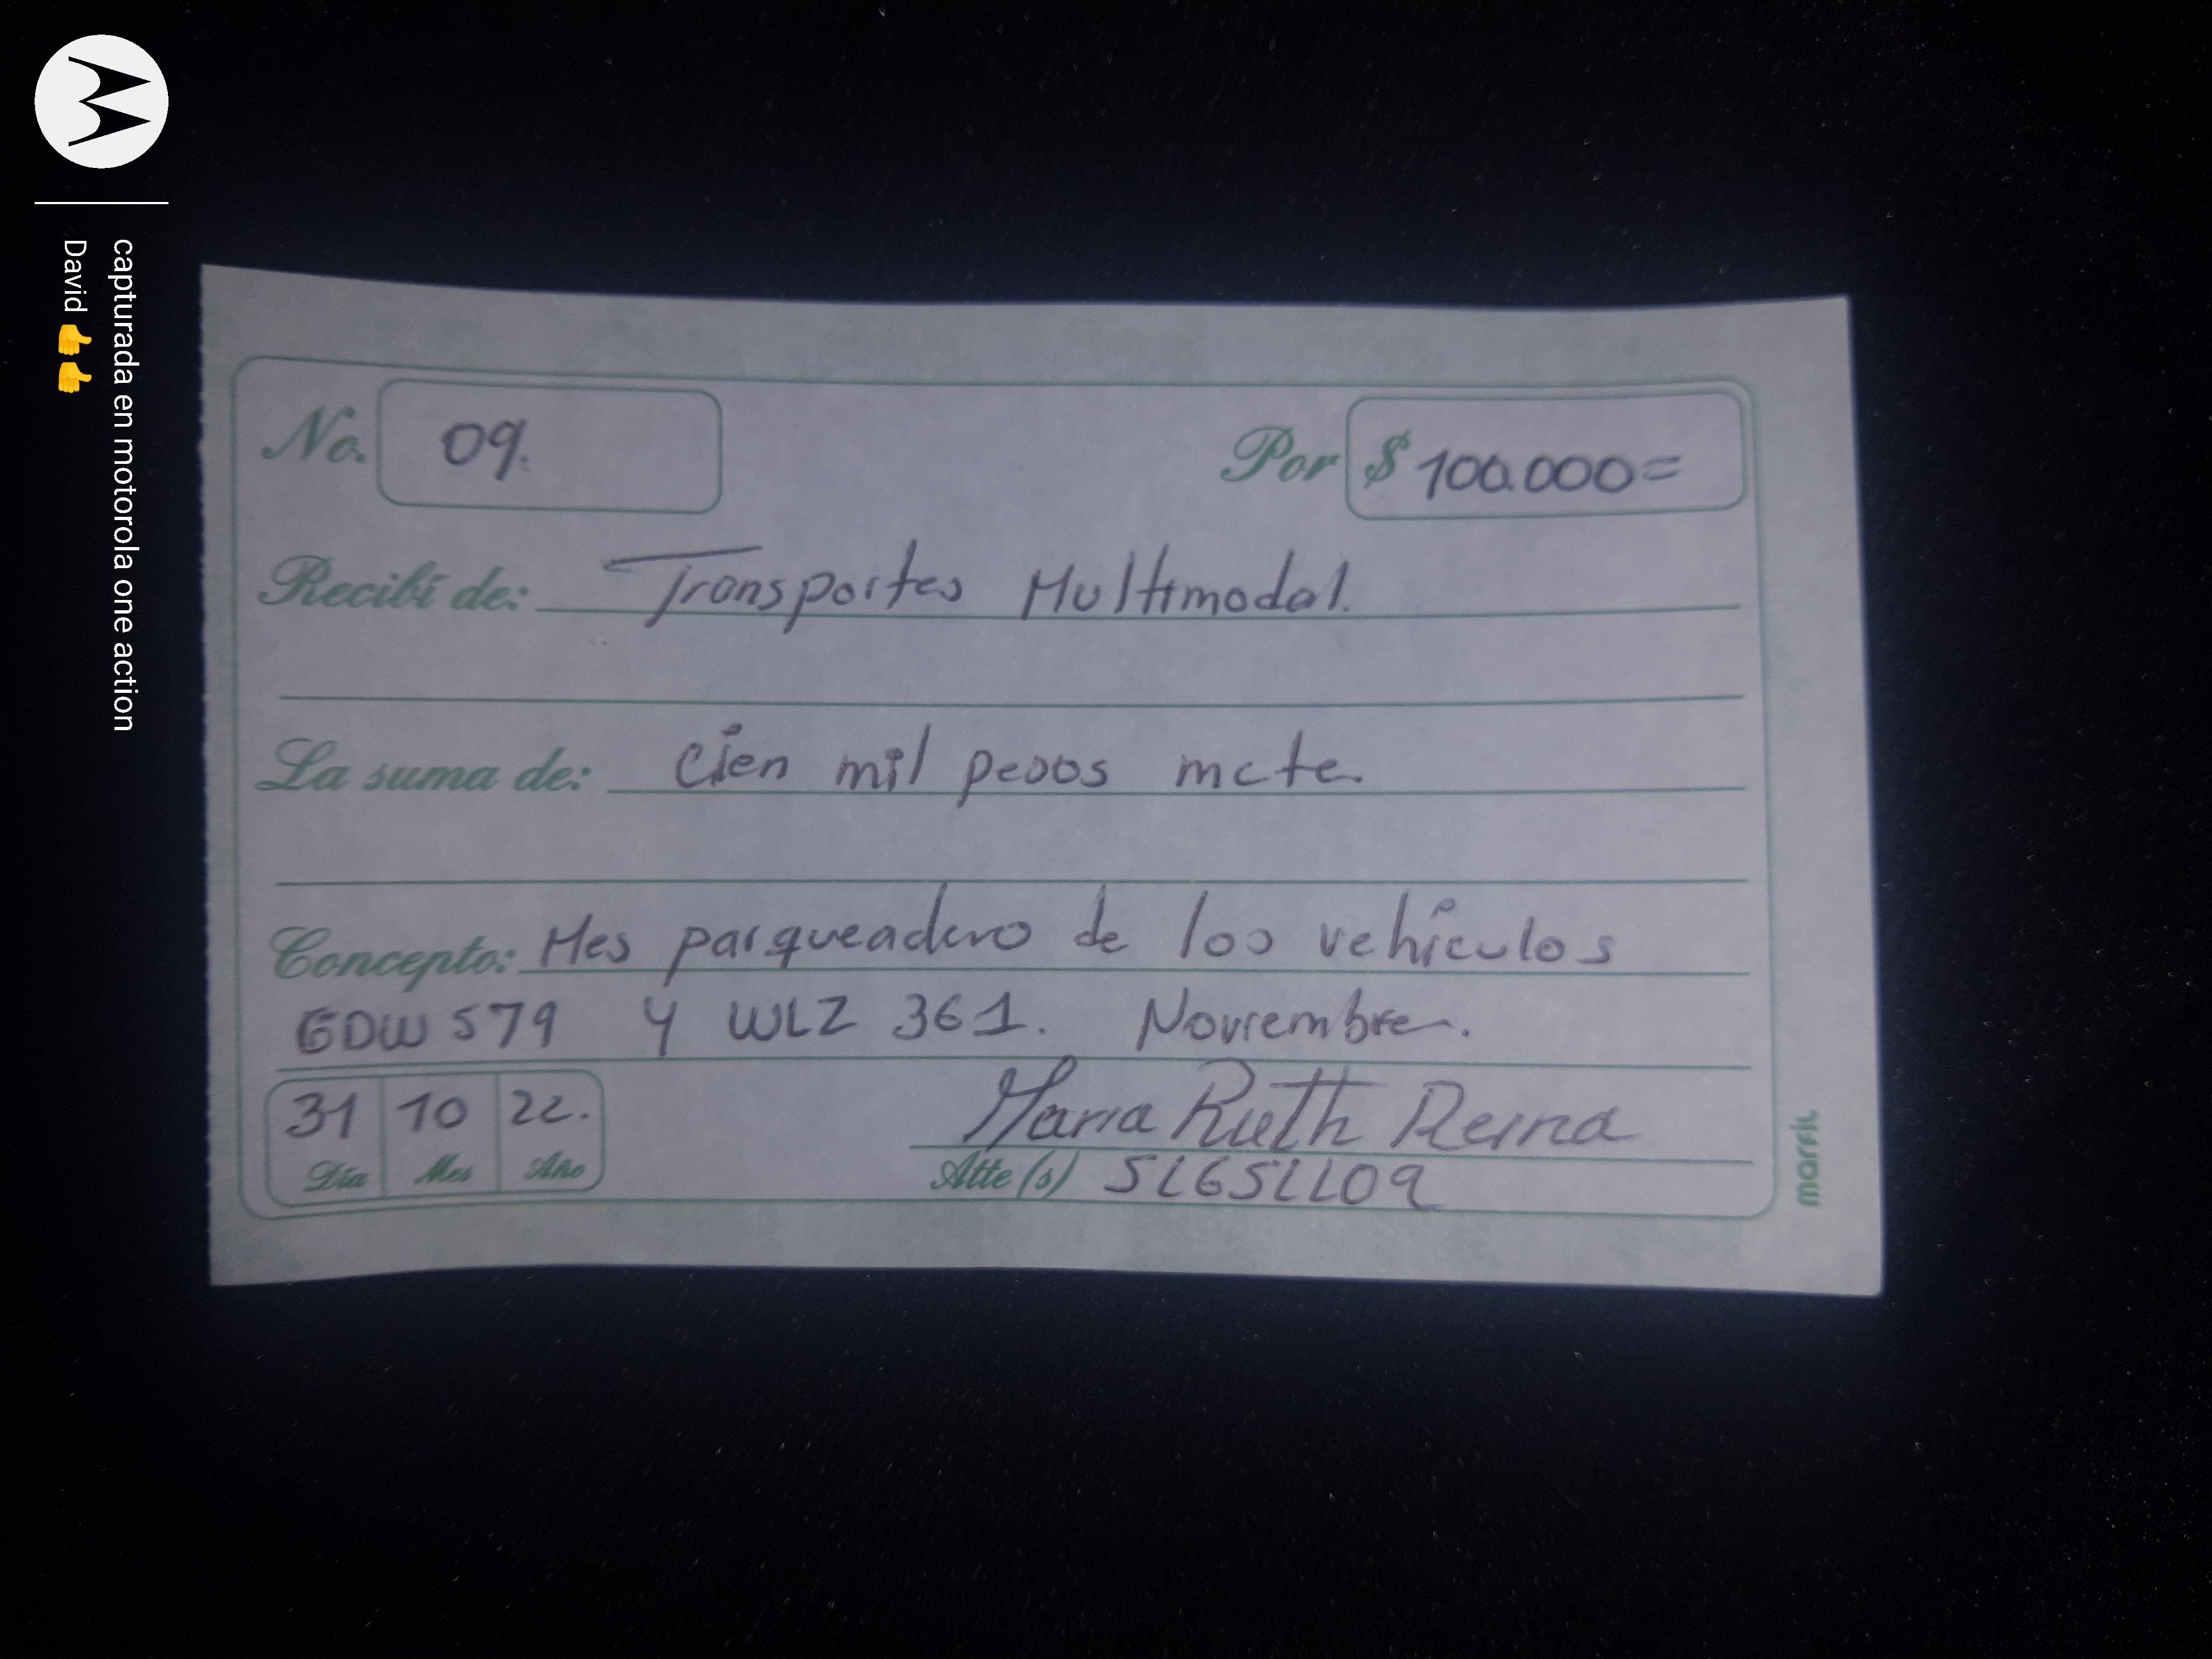 No. 09.
Por $ 100.000=
Recibí de: Transportes Multimodal.
La suma de: Cien mil pesos mcte.
Concepto: Mes parqueadero de los vehiculos
GDW 579 y WLZ 361. Noviembre.
31 10 22.
Día Mes Año
Maria Ruth Reina
Atte (s)
marfil
capturada en motorola one action
David 👍👍